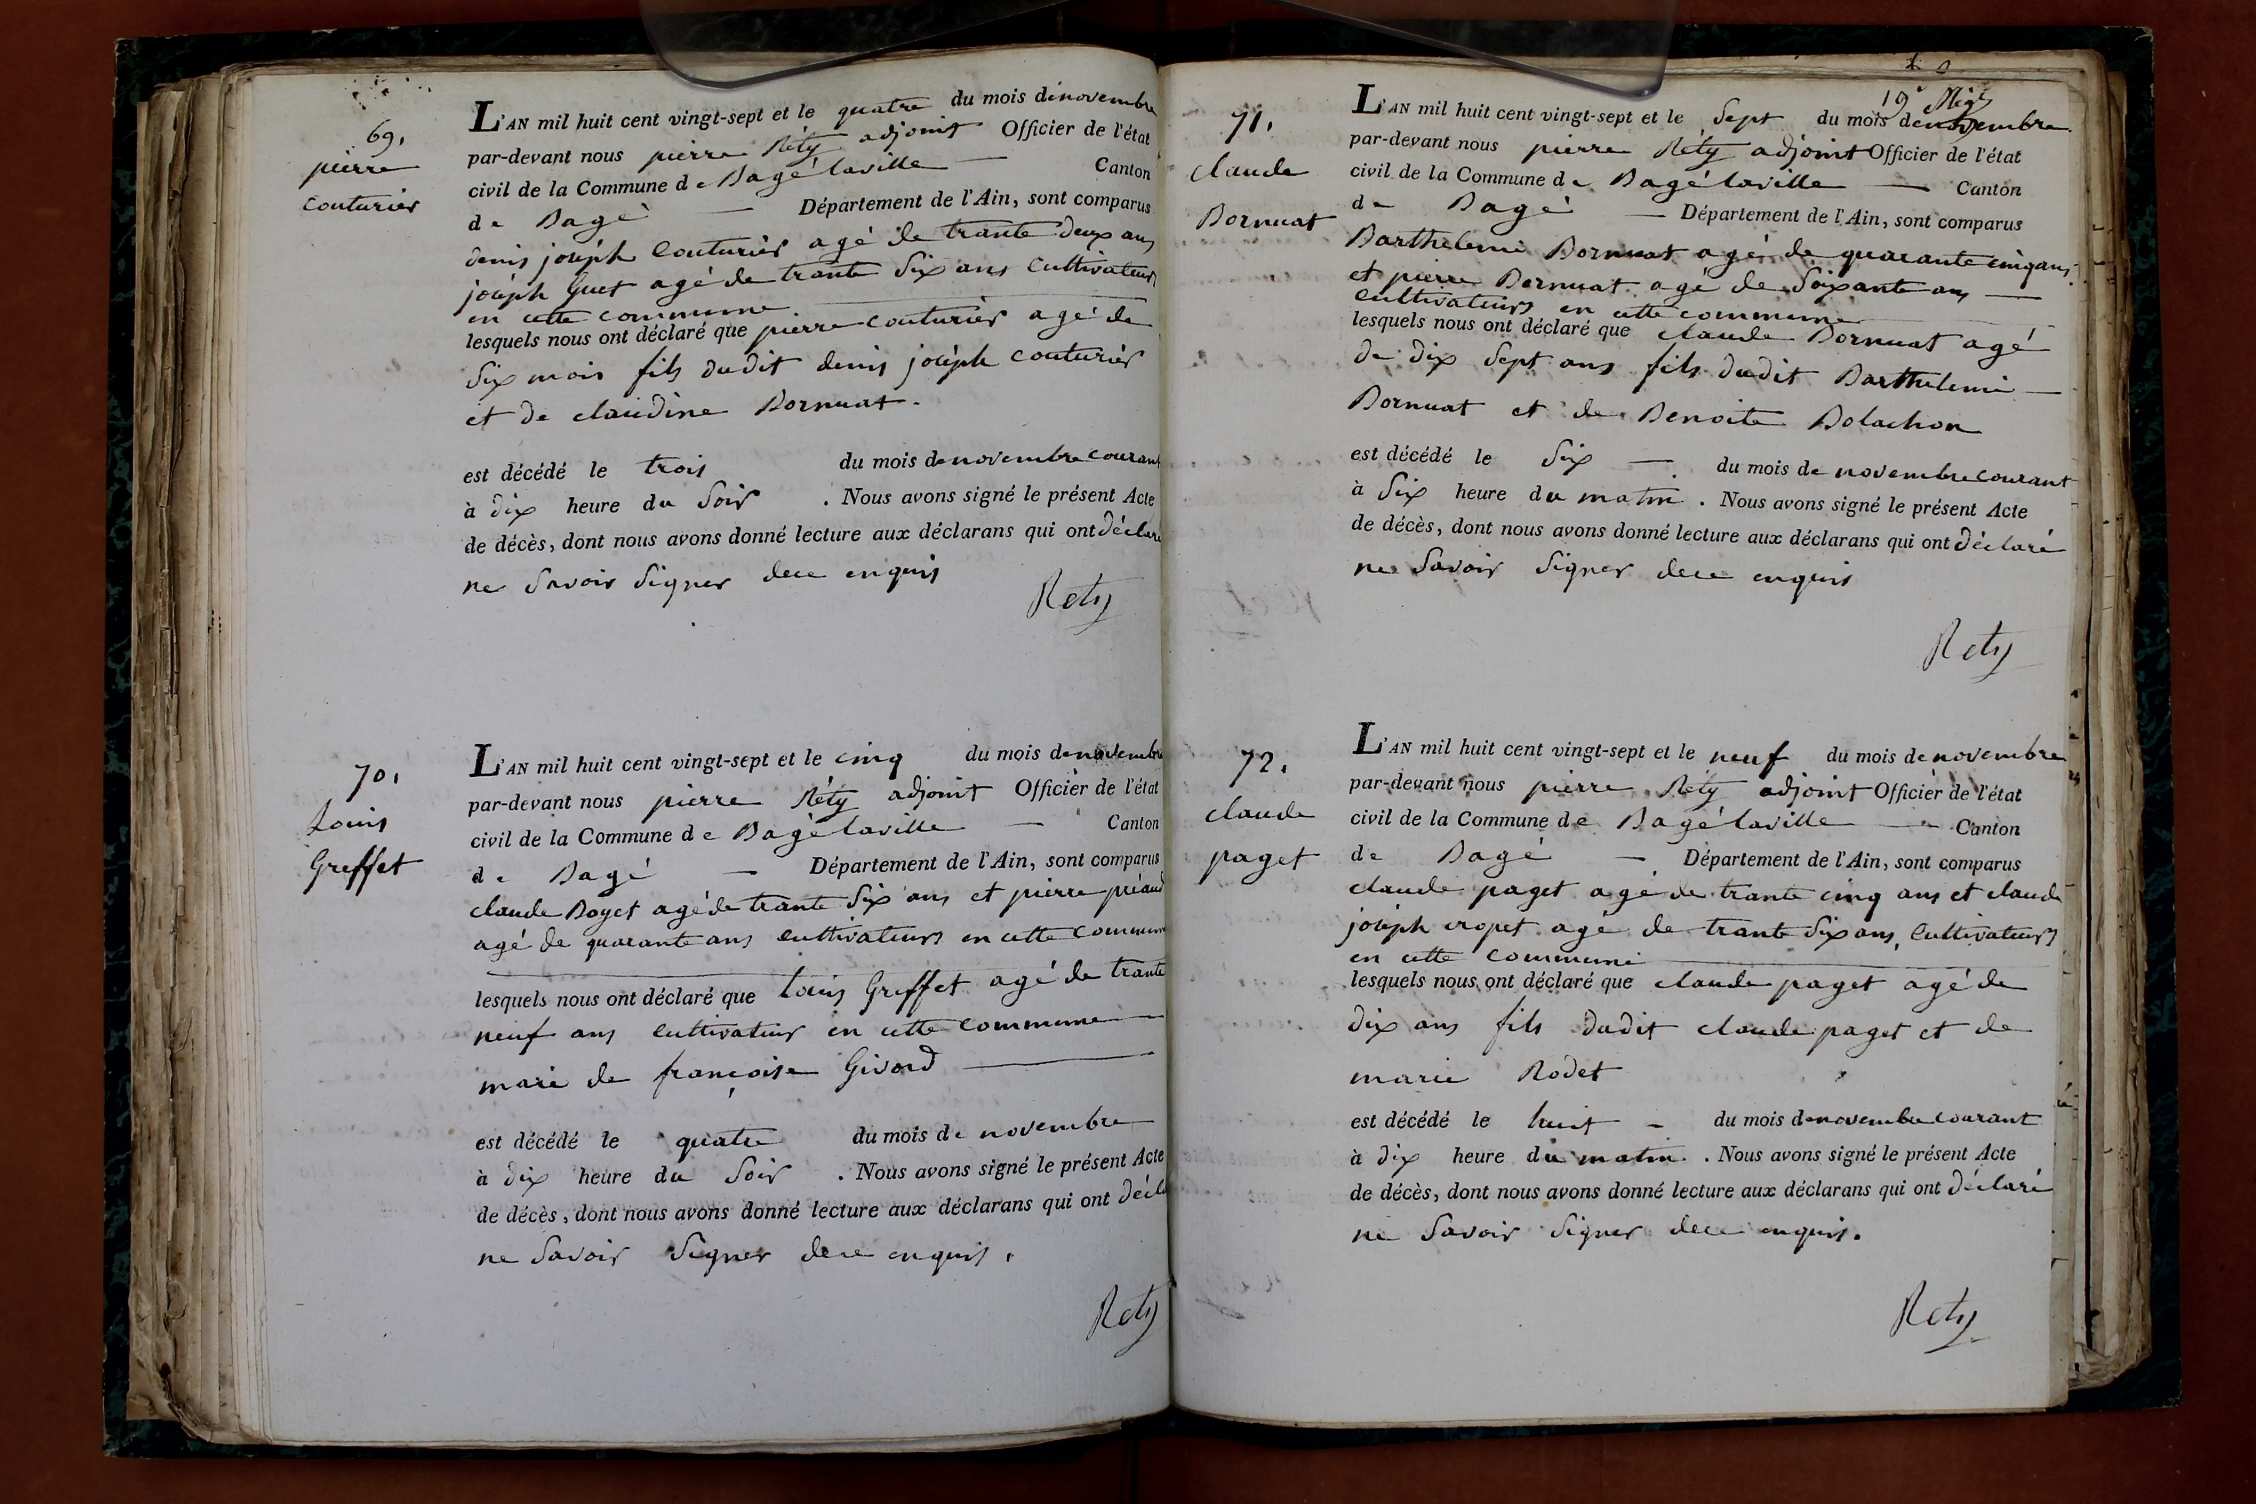 69.
pierre
couturier
L'AN mil huit cent vingt-sept et le quatre du mois de novembre
par-devant nous pierre Réty adjoint Officier de l'état
civil de la Commune de Bagé laville — Canton
de Bagé — Département de l'Ain, sont comparus
denis joséph Couturier agé de trante deux ans
joséph Guet agé de trante Six ans Cultivateurs
en cette commune
lesquels nous ont déclaré que pierre couturier agé de
Six mois fils dudit denis joséph couturier
et de claudine Bornuat.
est décédé le trois du mois de novembre courant
à dix heure du Soir . Nous avons signé le présent Acte
de décès, dont nous avons donné lecture aux déclarans qui ont déclaré
ne Savoir Signer dece enquis
Rety
70.
Louis
Greffet
L'AN mil huit cent vingt-sept et le cinq du mois de novembre
par-devant nous pierre Réty adjoint Officier de l'état
civil de la Commune de Bagé laville — Canton
de Bagé — Département de l'Ain, sont comparus
claude Boyet agé de trante Six ans et pierre préaud
agé de quarante ans cultivateurs en cette commune
lesquels nous ont déclaré que Louis Greffet agé de trante
neuf ans cultivateur en cette commune —
mari de françoise Givord —
est décédé le quatre du mois de novembre
à dix heure du Soir . Nous avons signé le présent Acte
de décès, dont nous avons donné lecture aux déclarans qui ont décla
ne Savoir Signer dece enquis.
Rety
19e
71.
claude
Bornuat
L'AN mil huit cent vingt-sept et le Sept du mois de novembre
par-devant nous pierre Réty adjoint Officier de l'état
civil de la Commune de Bagé laville — Canton
de Bagé — Département de l'Ain, sont comparus
Barthelemi Bornuat agé de quarante cinq ans
et pierre Bornuat agé de Soixante ans —
cultivateurs en cette commune
lesquels nous ont déclaré que claude Bornuat agé
de dix Sept ans fils dudit Barthelemi —
Bornuat et de Benoite Bolachon
est décédé le Six — du mois de novembre courant
à Six heure du matin . Nous avons signé le présent Acte
de décès, dont nous avons donné lecture aux déclarans qui ont déclaré
ne Savoir Signer dece enquis
Rety
72.
claude
paget
L'AN mil huit cent vingt-sept et le neuf du mois de novembre
par-devant nous pierre Réty adjoint Officier de l'état
civil de la Commune de Bagé laville — Canton
de Bagé — Département de l'Ain, sont comparus
claude paget agé de trante cinq ans et claude
joséph cropet agé de trante Six ans, Cultivateurs
en cette commune
lesquels nous ont déclaré que claude paget agé de
dix ans fils dudit claude paget et de
marie Rodet
est décédé le huit — du mois de novembre courant
à dix heure du matin . Nous avons signé le présent Acte
de décès, dont nous avons donné lecture aux déclarans qui ont déclaré
ne Savoir Signer dece enquis.
Rety